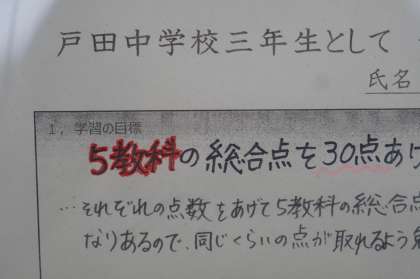 戸田中学校三年生として
氏名
1. 学習の目標
5教科の総合点を30点あげ
…それぞれの点数をあげて5教科の総合点
なりあるので、同じくらいの点が取れるよう